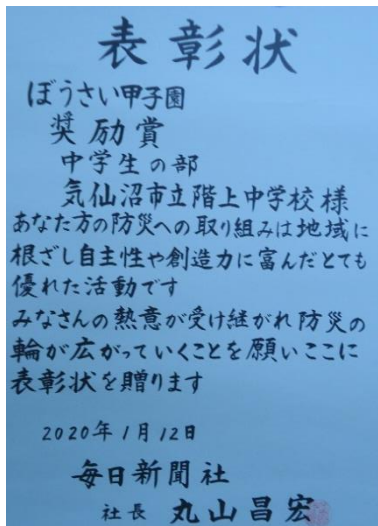 表彰状
ぼうさい甲子園
奨励賞
中学生の部
気仙沼市立階上中学校様
あなた方の防災への取り組みは地域に
根ざし自主性や創造力に富んだとても
優れた活動です
みなさんの熱意が受け継がれ防災の
輪が広がっていくことを願いここに
表彰状を贈ります
2020年1月12日
毎日新聞社
社長 丸山昌宏